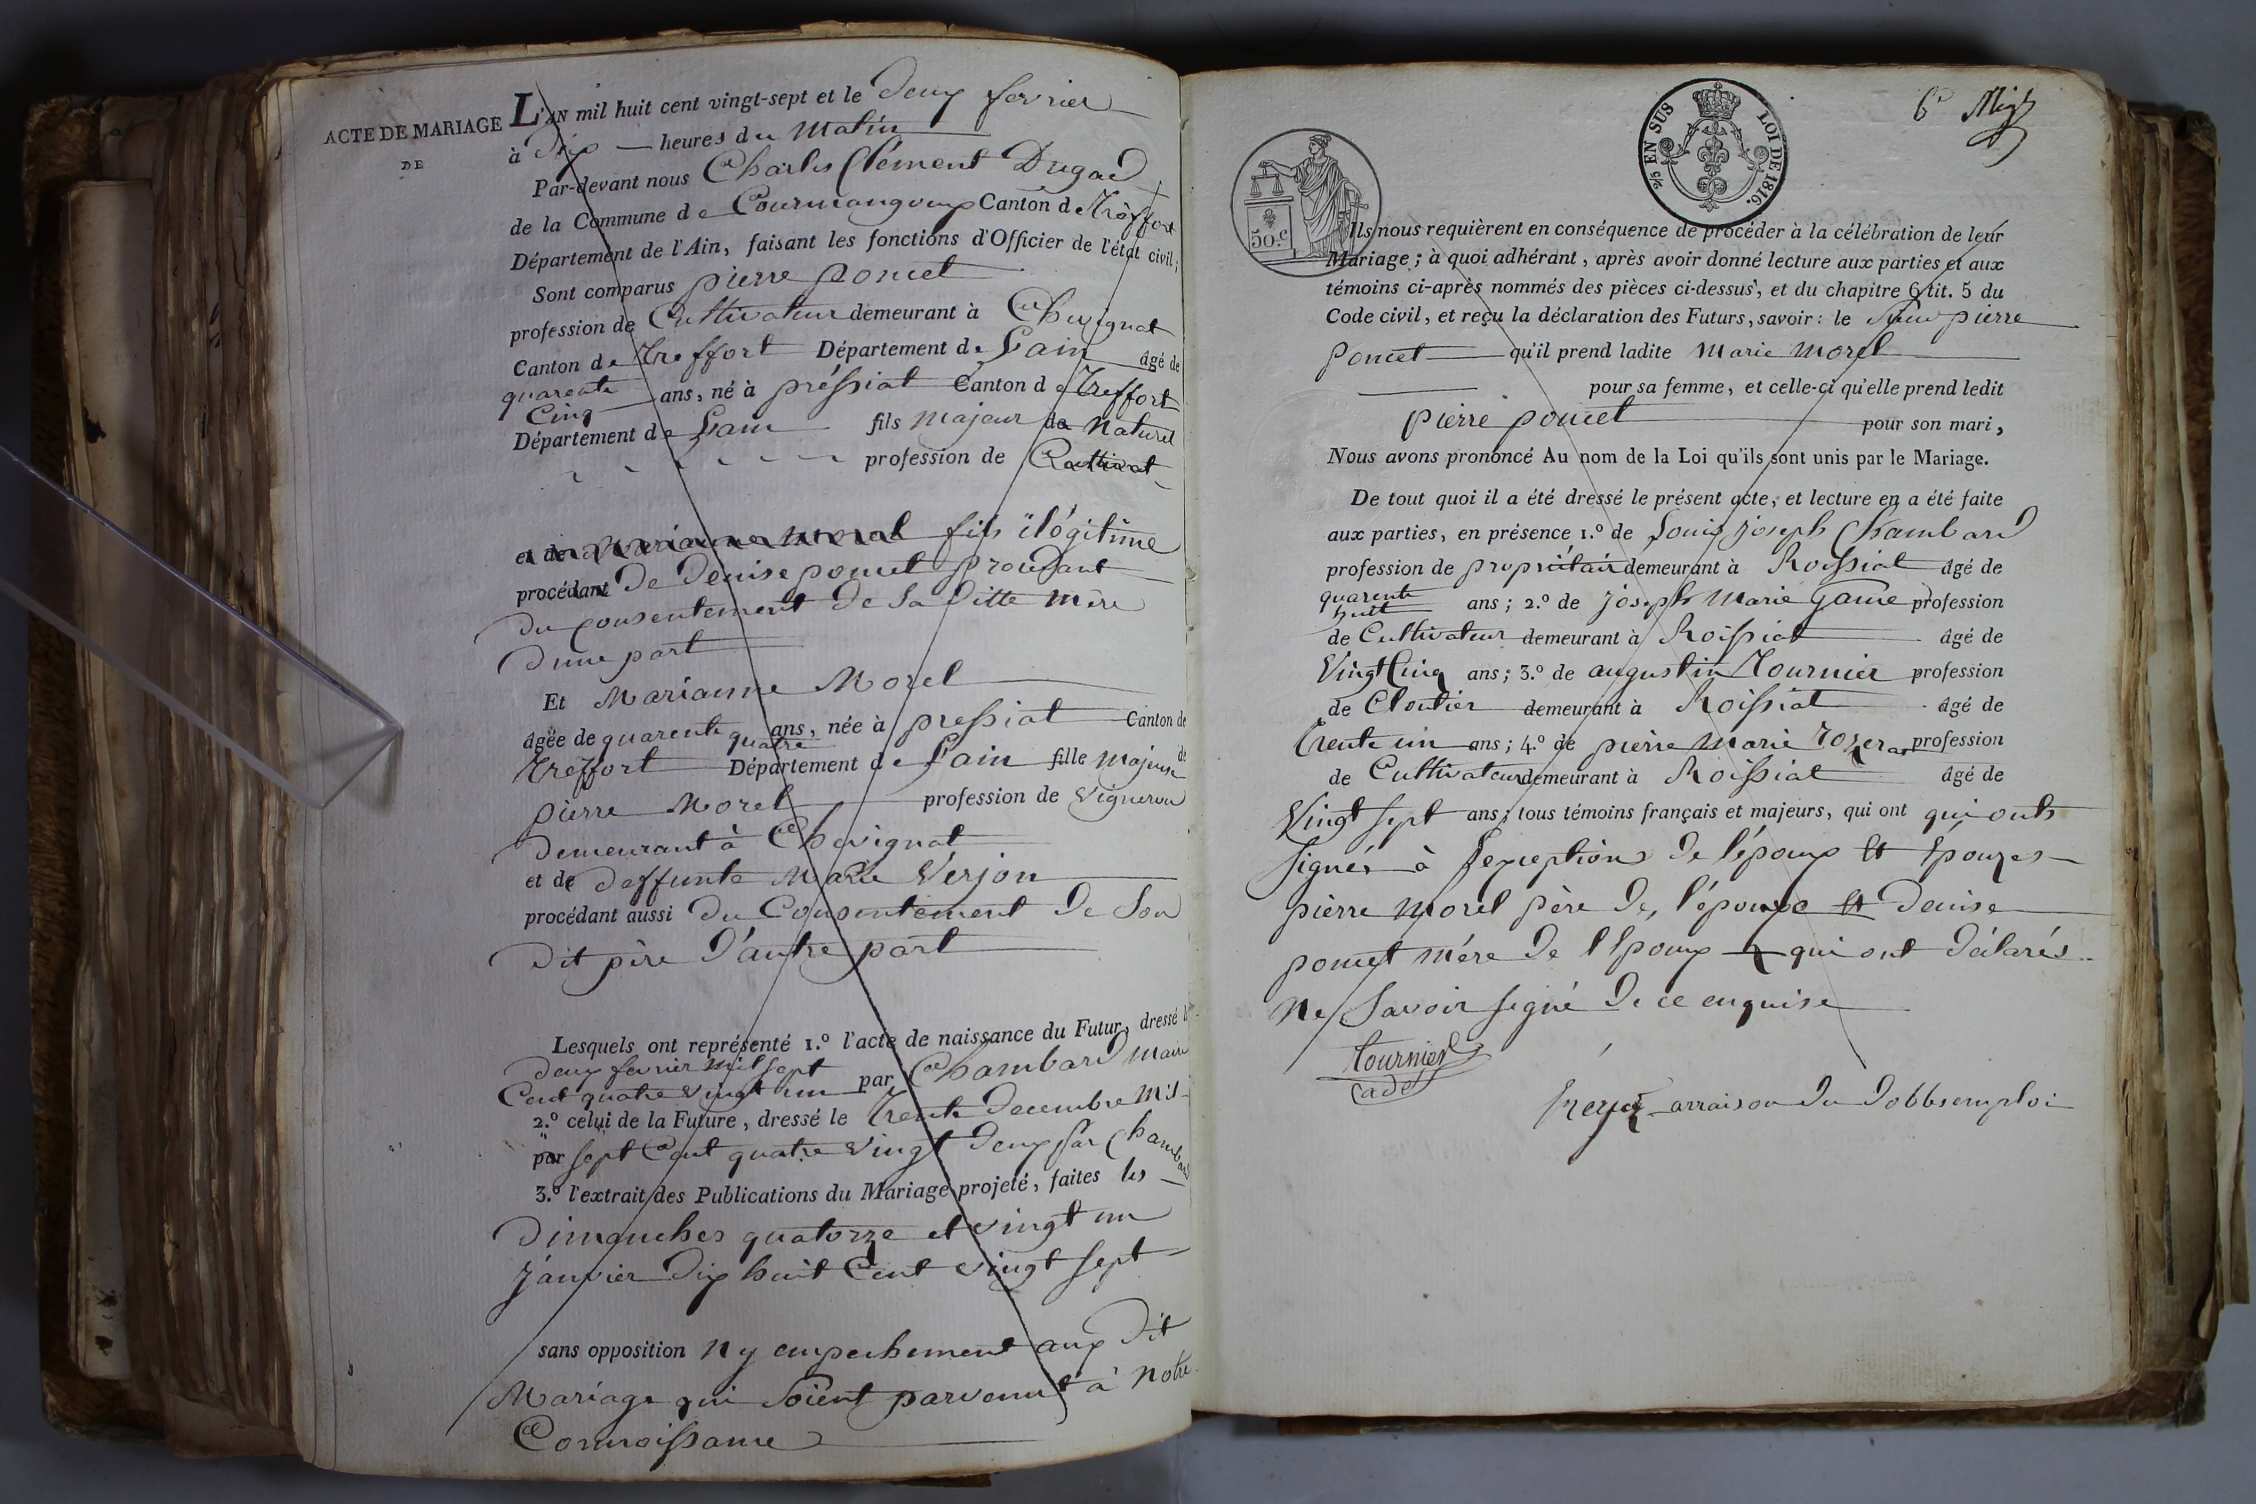 ACTE DE MARIAGE
DE
L'AN mil huit cent vingt-sept et le deux fevrier
à dix heures du Matin
Par-devant nous Charles Clément Dugad
de la Commune de Courmangoux Canton de Tréffort
Département de l'Ain, faisant les fonctions d'Officier de l'état civil;
Sont comparus pierre poncet
profession de Cultivateur demeurant à Chevignat
Canton de Treffort Département de Lain âgé de
quarente
Cinq ans, né à préssiat Canton de Treffort
Département de Lain fils majeur de Naturel
profession de Cultivat
et de Marianne Morel fils ilégitime
procédant De Denise poncet procedant
du consentement de sa ditte mère
dune part
Et Marianne Morel
âgée de quarente quatre ans, née à pressiat Canton de
Treffort Département de Lain fille majeure de
pierre Morel profession de Vigneron
demeurant à Chevignat
et de deffunte Marie Verjon
procédant aussi du Consentement de Son
dit père d'autre part
Lesquels ont représenté 1.º l'acte de naissance du Futur, dressé le
deux fevrier mil sept
Cent quatre vingt un par Chambard maire
2.º celui de la Future, dressé le Trente decembre mil
par sept Cent quatre vingt deux par Chambard
3.º l'extrait des Publications du Mariage projeté, faites les
dimanches quatorze et vingt un
janvier dix huit Cent vingt sept
sans opposition ny empechement aux dit
Mariage qui soient parvenut à notre
Connoissance
EN SUS LOI DE 1816.
50.c
Ils nous requièrent en conséquence de procéder à la célébration de leur
Mariage; à quoi adhérant, après avoir donné lecture aux parties et aux
témoins ci-après nommés des pièces ci-dessus, et du chapitre 6, tit. 5 du
Code civil, et reçu la déclaration des Futurs, savoir: le Sieur pierre
poncet qu'il prend ladite Marie Morel
pour sa femme, et celle-ci qu'elle prend ledit
pierre poncet pour son mari,
Nous avons prononcé Au nom de la Loi qu'ils sont unis par le Mariage.
De tout quoi il a été dressé le présent acte, et lecture en a été faite
aux parties, en présence 1.º de Louis joseph Chambard
profession de propriétair demeurant à Roissiat âgé de
quarente
huit ans; 2.º de joseph Marie Game profession
de Cultivateur demeurant à Roissiat âgé de
Vingt Cinq ans; 3.º de augustin Tournier profession
de Cloutier demeurant à Roissiat âgé de
trente un ans; 4.º de pierre Marie profession
de Cultivateur demeurant à Roissiat âgé de
Vingt sept ans; tous témoins français et majeurs, qui ont qui onts
signés à l'exeptions de l'époux et Epouzes
pierre Morel père de l'épouse et Denise
poncet mére de lEpoux qui ont déclarés
Ne Savoir signé de ce enquise
tournier
cadet
arraison du dobbsemploi